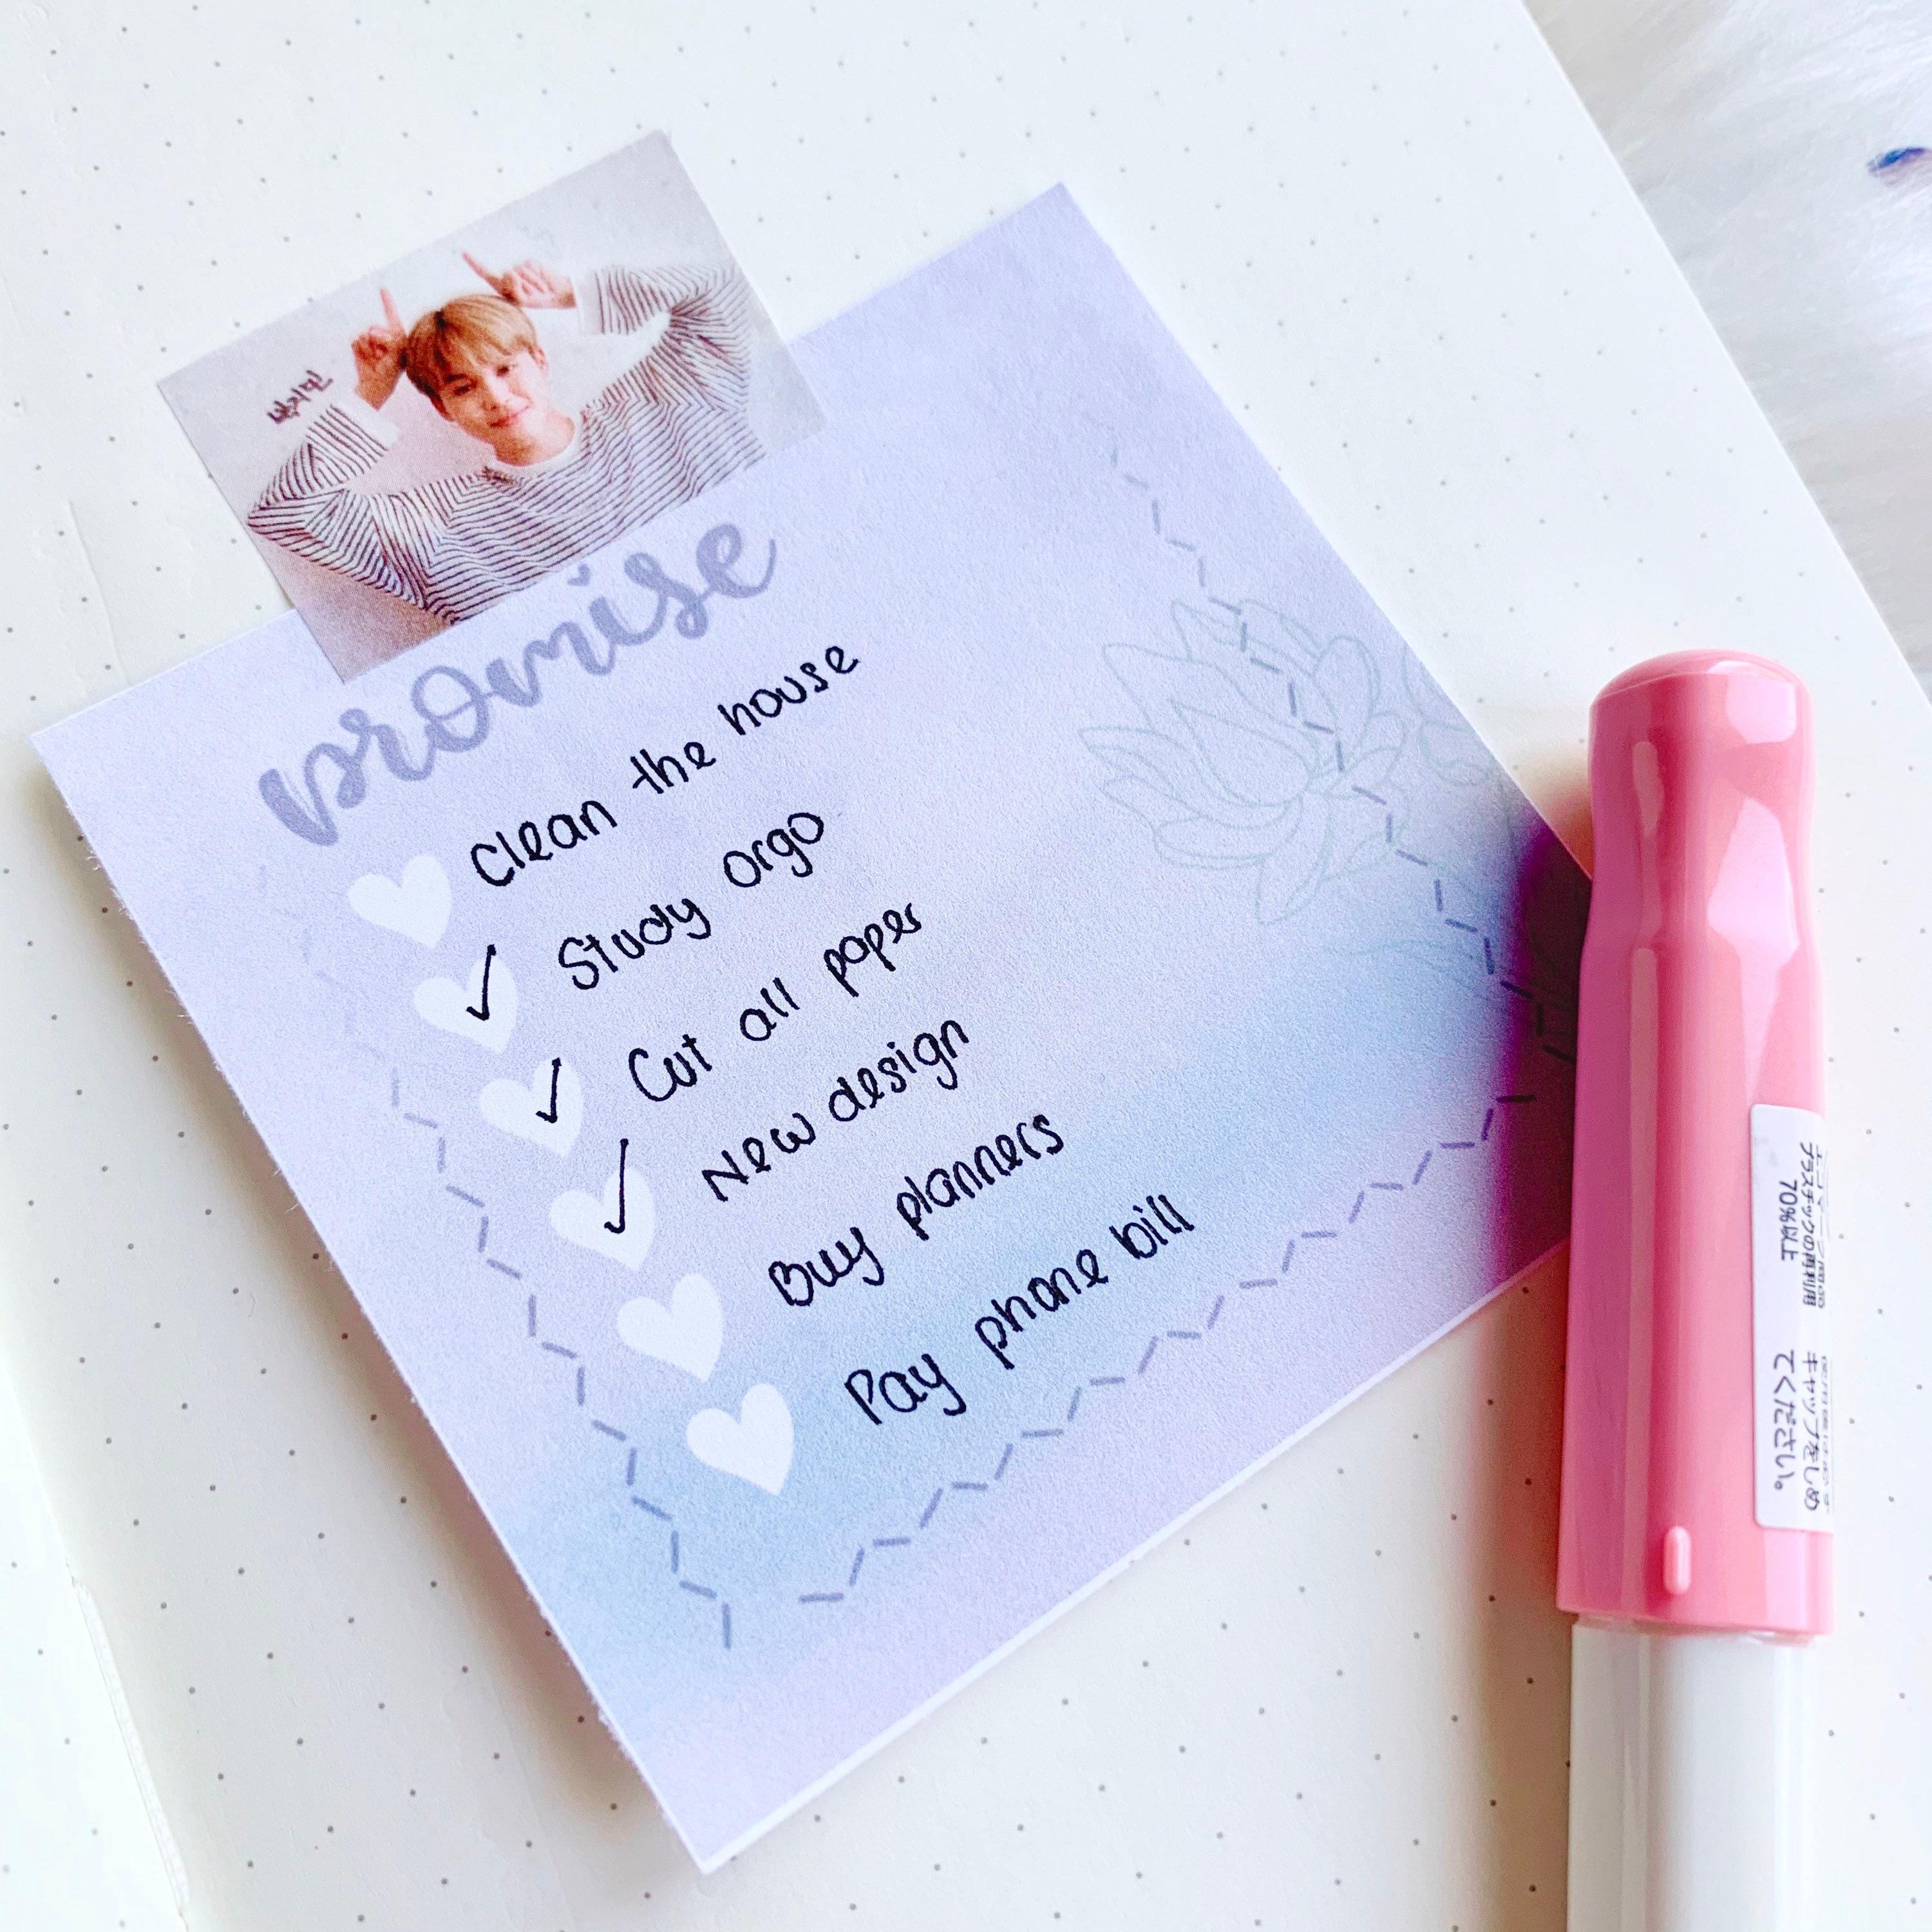 박지민
promise
Clean the house
✓ Study orgo
✓ Cut all paper
✓ New design
Buy planners
Pay phone bill
プラスチックの再利用
70%以上
キャップをしめ
てください。